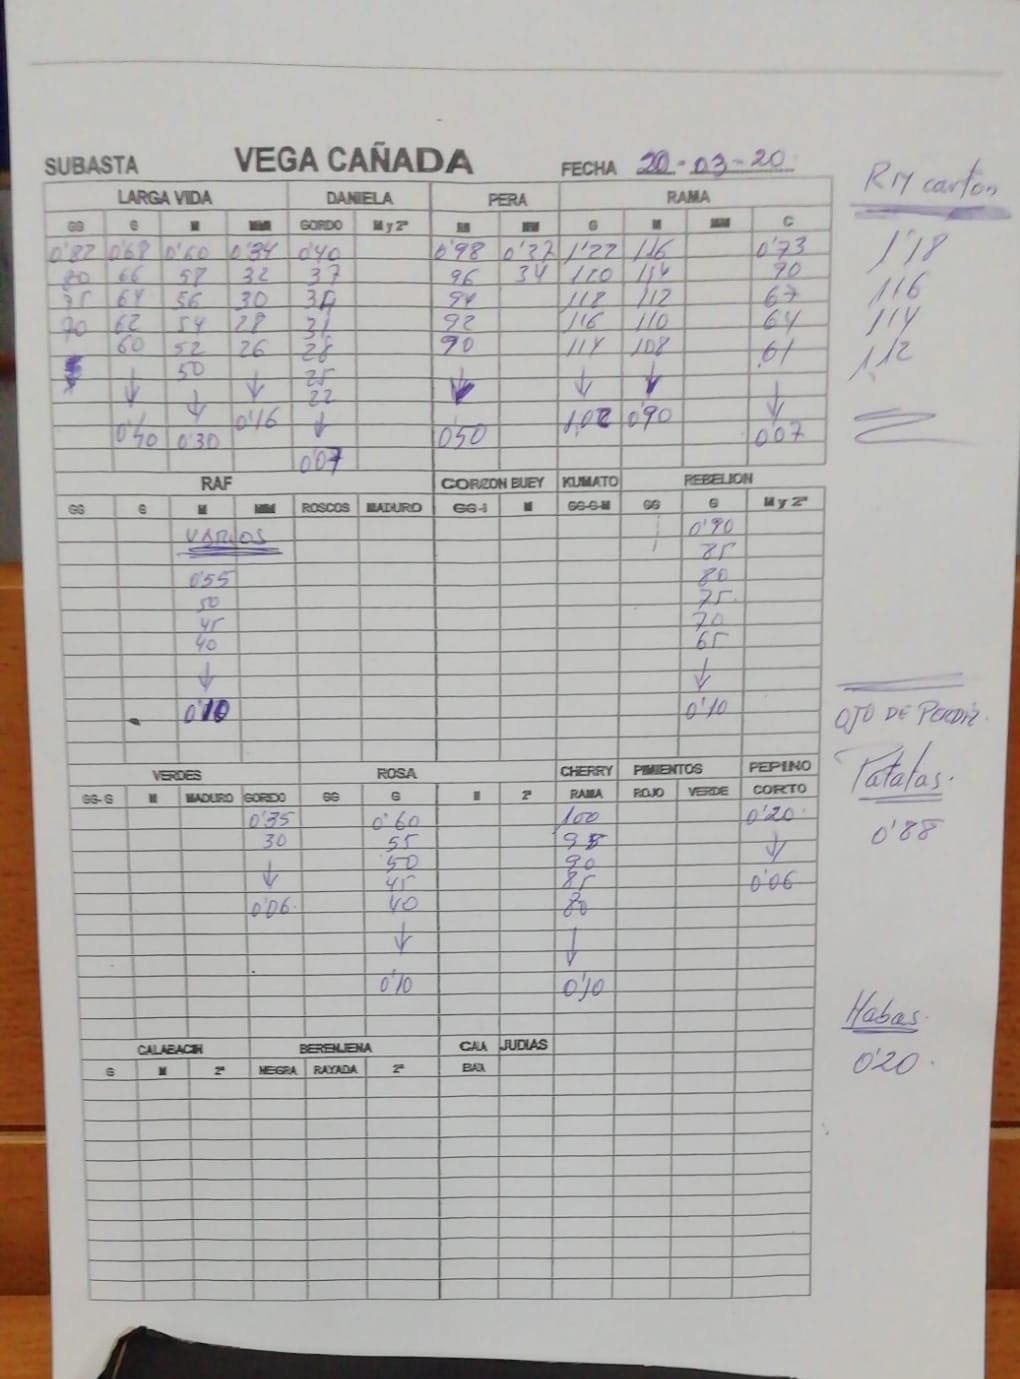 SUBASTA VEGA CAÑADA FECHA 20-03-20
RM carton
LARGA VIDA DANIELA PERA RAMA
GG G M MM GORDO M y 2ª M MM G M MM C
0'82 0'68 0'60 0'34 0'40 0'98 0'37 1'22 116 0'73 1'18
80 66 58 32 37 96 34 120 114 70
75 64 56 30 34 94 118 112 67 116
70 62 54 28 31 92 116 110 64 114
60 52 26 28 90 114 108 61 112
50 25
22
0'40 0'30 0'16 0'50 1,02 0'90 0'07
0'07
RAF CORZON BUEY KUMATO REBELION
GG G M MM ROSCOS MADURO GG-G-M GG G M y 2ª
VARIOS 0'90
85
0'55 80
50 75
45 70
40 65
0'10 0'10
OJO DE PERDIZ.
VERDES ROSA CHERRY PIMIENTOS PEPINO
Patatas.
GG-G M MADURO GORDO GG G M 2ª RAMA ROJO VERDE CORTO
0'35 0'60 100 0'20
30 55 95 0'88
50 90
45 85 0'06
0'06 40 80
0'10 0'10
Habas.
CALABACIN BERENJENA JUDIAS
G M 2ª NEGRA RAYADA 2ª
0'20